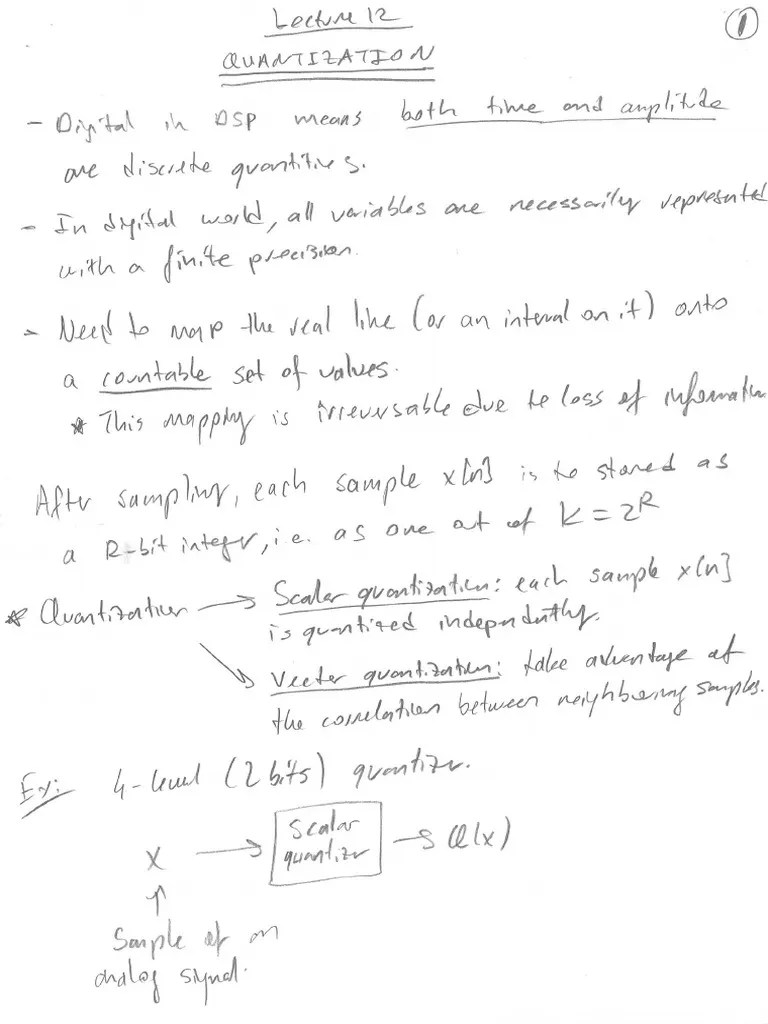 Lecture 12
①
QUANTIZATION
- Digital in DSP means both time and amplitude
are discrete quantities.
- In digital world, all variables are necessarily represented
with a finite precision.
- Need to map the real line (or an interval on it) onto
a countable set of values.
* This mapping is irreversable due to loss of information
After sampling, each sample x[n] is to stored as
a R-bit integer, i.e. as one out of K = 2^R
* Quantization → Scalar quantization: each sample x[n]
is quantized independently.
↘ Vector quantization: take advantage of
the correlation between neighboring samples.
Ex: 4-level (2 bits) quantizer.
X → Scalar quantizer → Q(x)
↑
Sample of an
analog signal.